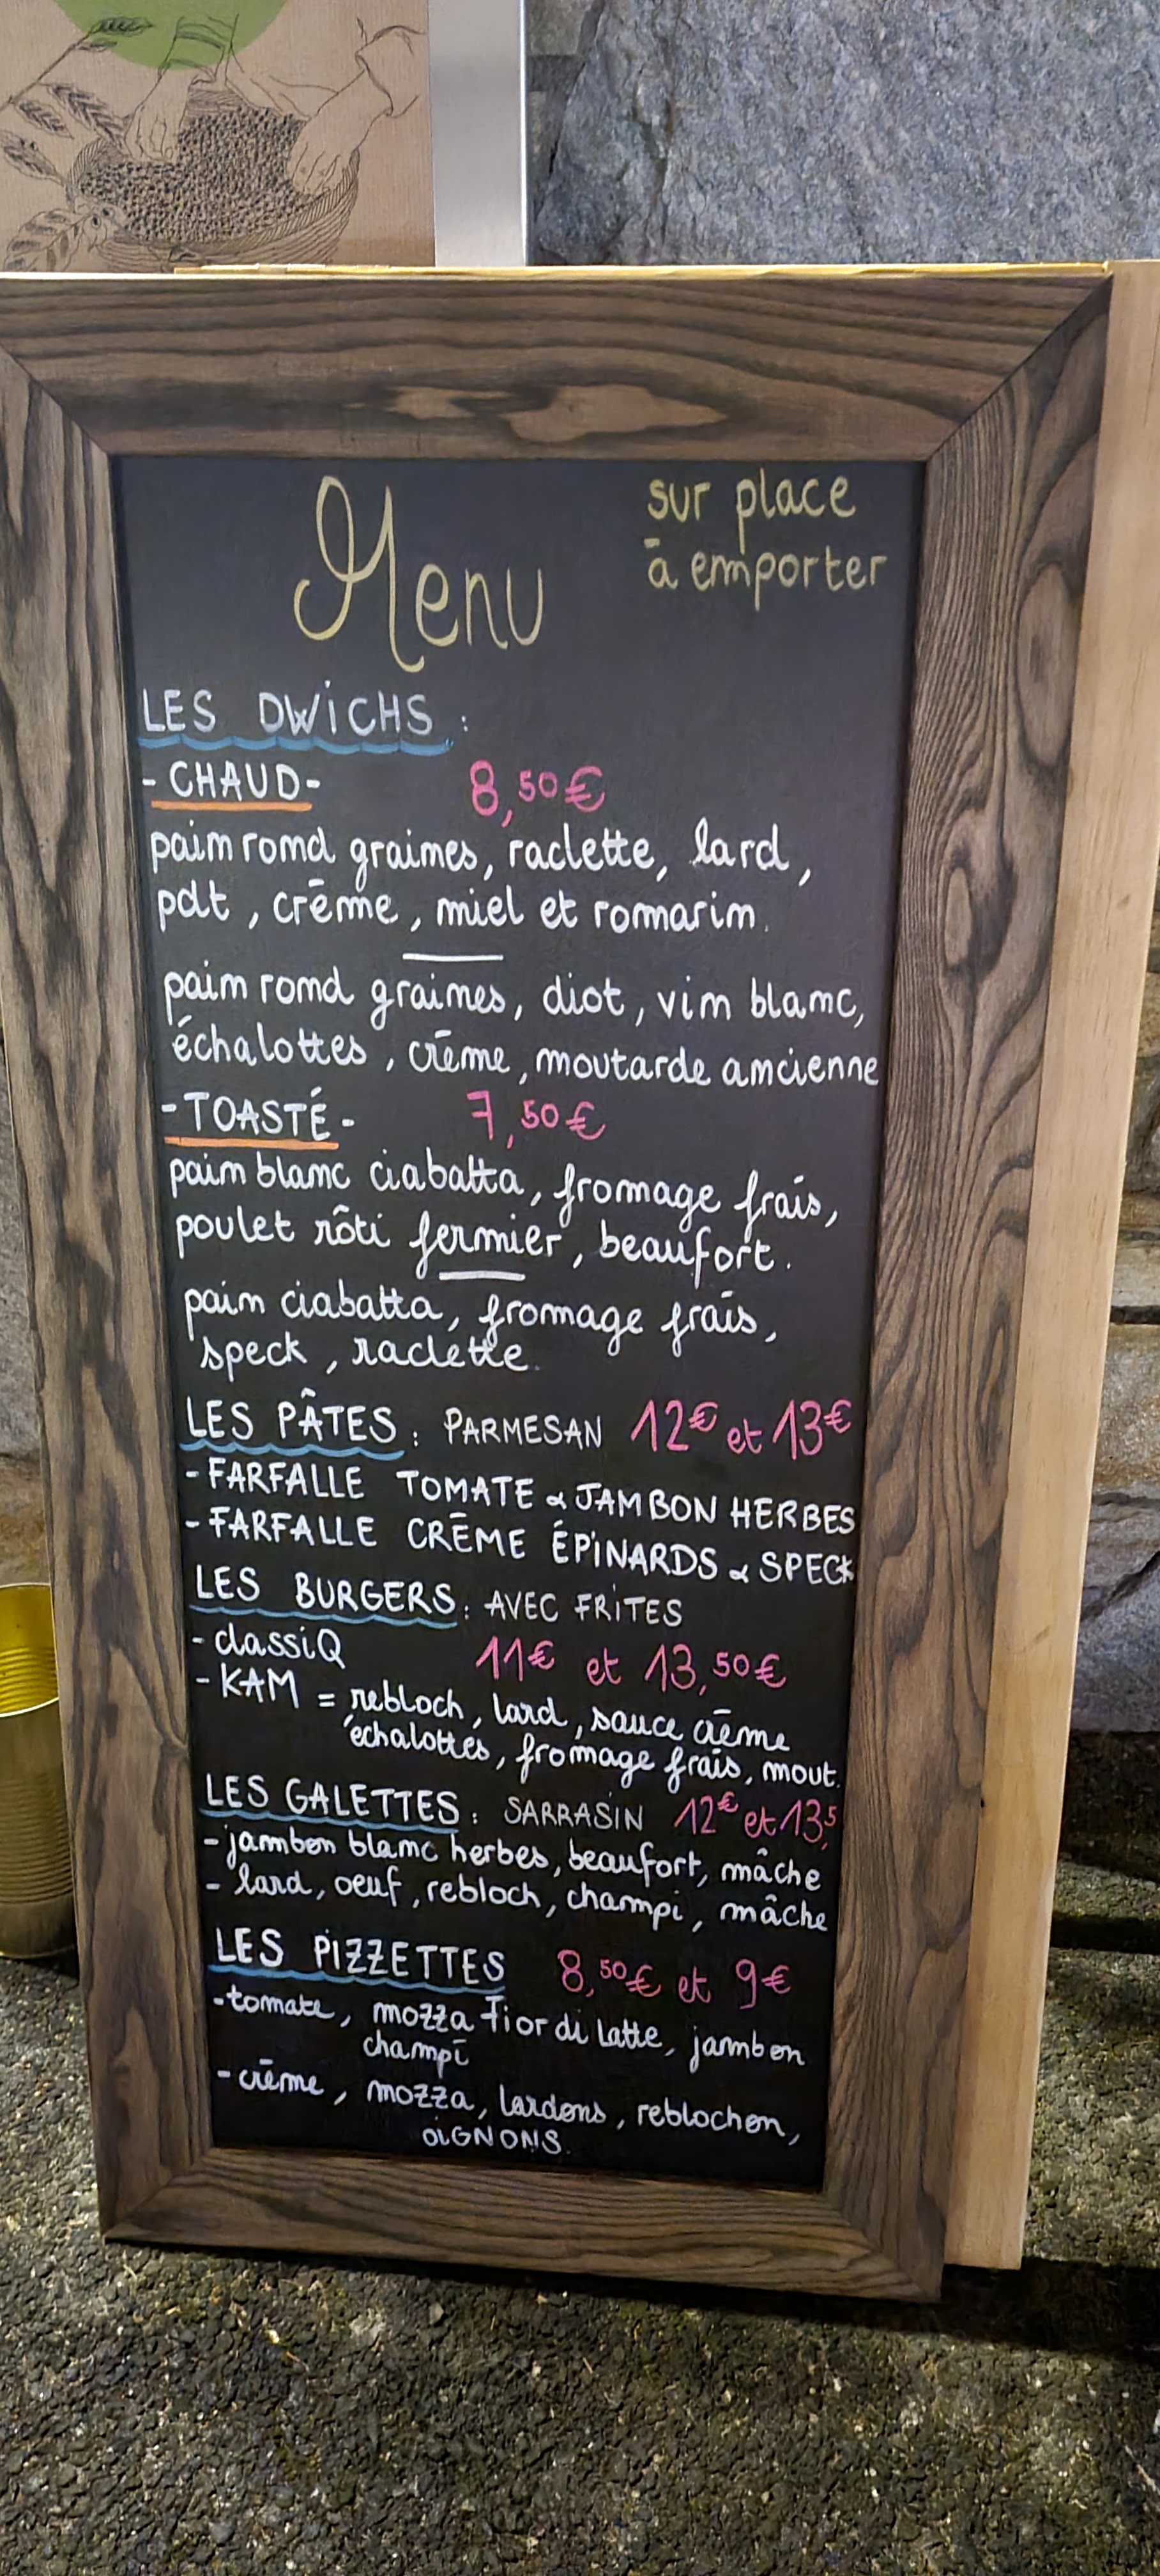 Menu
sur place
à emporter
LES DWICHS :
- CHAUD - 8,50€
pain rond graines, raclette, lard,
pdt, crème, miel et romarin.
pain rond graines, diot, vin blanc,
échalottes, crème, moutarde ancienne
- TOASTÉ - 7,50€
pain blanc ciabatta, fromage frais,
poulet rôti fermier, beaufort.
pain ciabatta, fromage frais,
speck, raclette.
LES PÂTES : PARMESAN 12€ et 13€
- FARFALLE TOMATE & JAMBON HERBES
- FARFALLE CRÈME ÉPINARDS & SPECK
LES BURGERS : AVEC FRITES
- classiQ 11€ et 13,50€
- KAM = rebloch, lard, sauce crème
échalottes, fromage frais, mout.
LES GALETTES : SARRASIN 12€ et 13,5
- jambon blanc herbes, beaufort, mâche
- lard, oeuf, rebloch, champi, mâche
LES PIZZETTES 8,50€ et 9€
- tomate, mozza Fior di Latte, jambon
champi
- crème, mozza, lardons, reblochon,
OIGNONS.